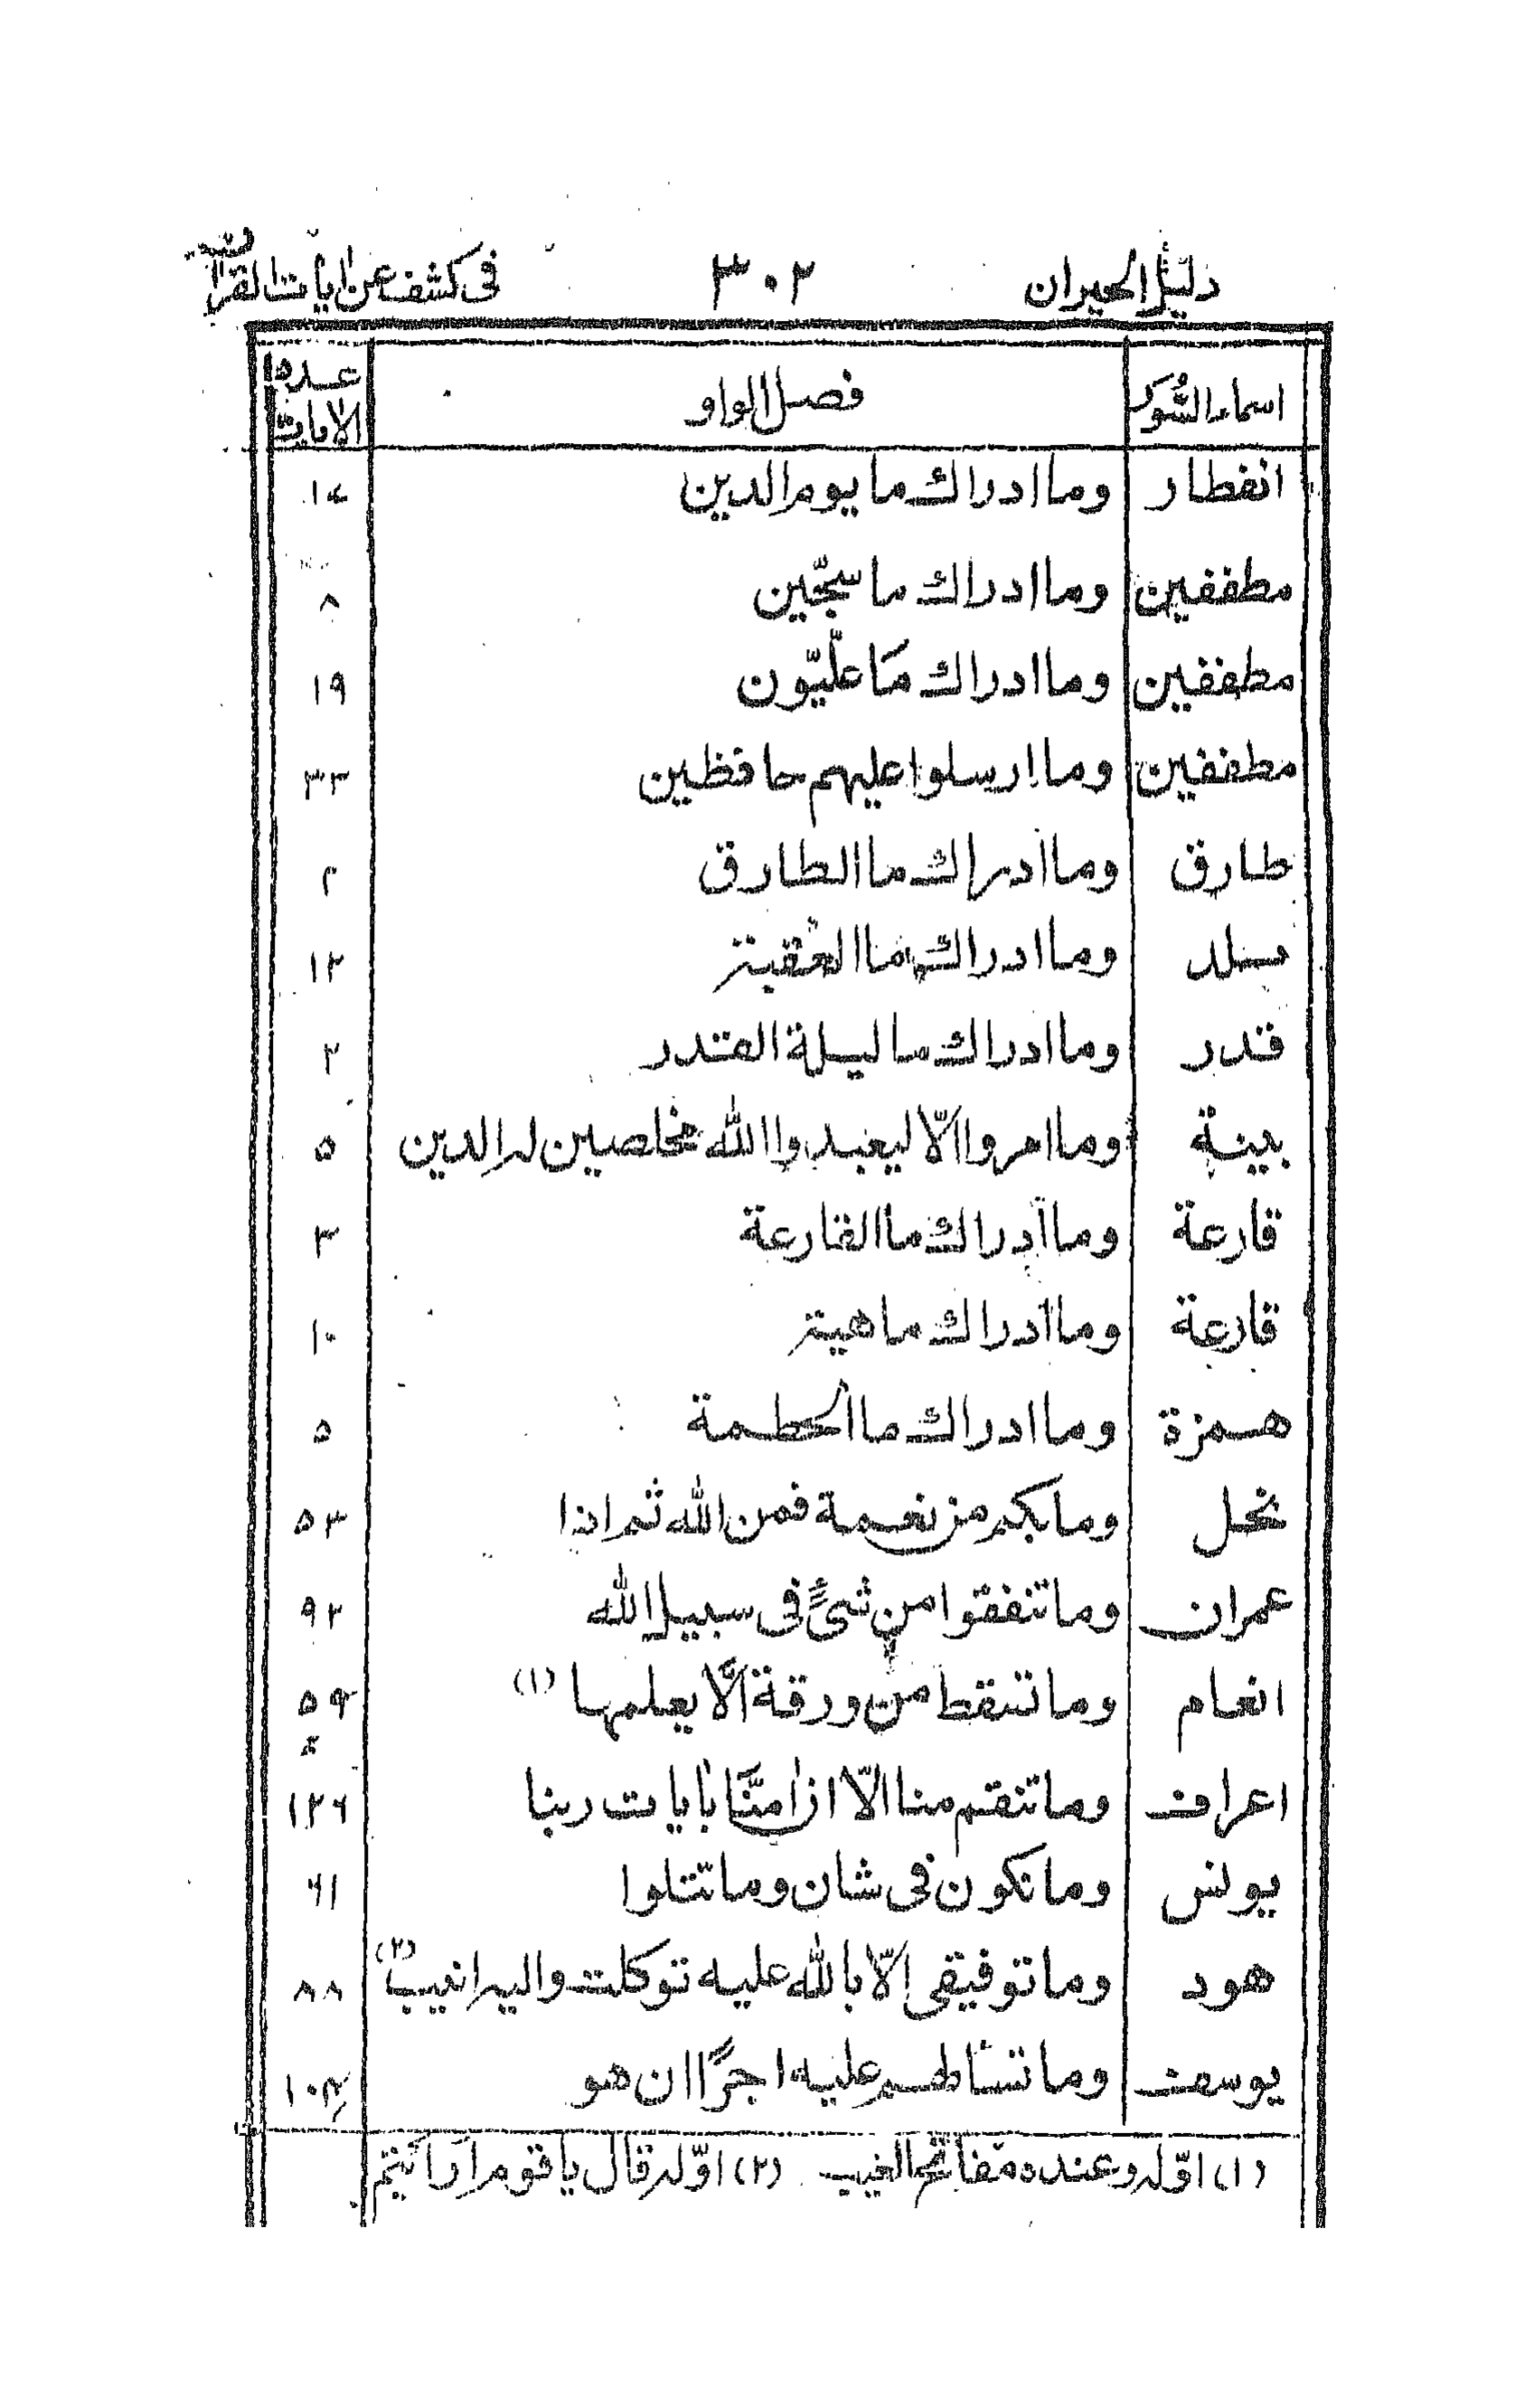 دليل الحيران ٣٠٢ فى كشف عن ايات القران
اسماء السُّور فصل الواو عدد الايات
انفطار وما ادراك ما يوم الدين ١٧
مطففين وما ادراك ما سجّين ٨
مطففين وما ادراك مَا علّيّون ١٩
مطففين وما ارسلوا عليهم حافظين ٣٣
طارق وما ادراك ما الطارق ٢
بلد وما ادراك ما العقبة ١٢
قدر وما ادراك ما ليلة القدر ٢
بينة وما امروا الّا ليعبدوا الله مخلصين له الدين ٥
قارعة وما ادراك ما القارعة ٣
قارعة وما ادراك ما هيه ١٠
همزة وما ادراك ما الحطمة ٥
نحل وما بكم من نعمة فمن الله ثم اذا ٥٣
عمران وما تنفقوا من شئ فى سبيل الله ٩٢
انعام وما تسقط من ورقة الّا يعلمها (١) ٥٩
اعراف وما تنقم منا الّا ان امنَّا بايات ربنا ١٢٦
يونس وما تكون فى شان وما تتلوا ٦١
هود وما توفيقى الّا بالله عليه توكلت واليه انيب (٢) ٨٨
يوسف وما تسئلهم عليه اجرًا ان هو ١٠٤
(١) اوّله وعنده مفاتح الغيب (٢) اوّله قال يا قوم ارأيتم